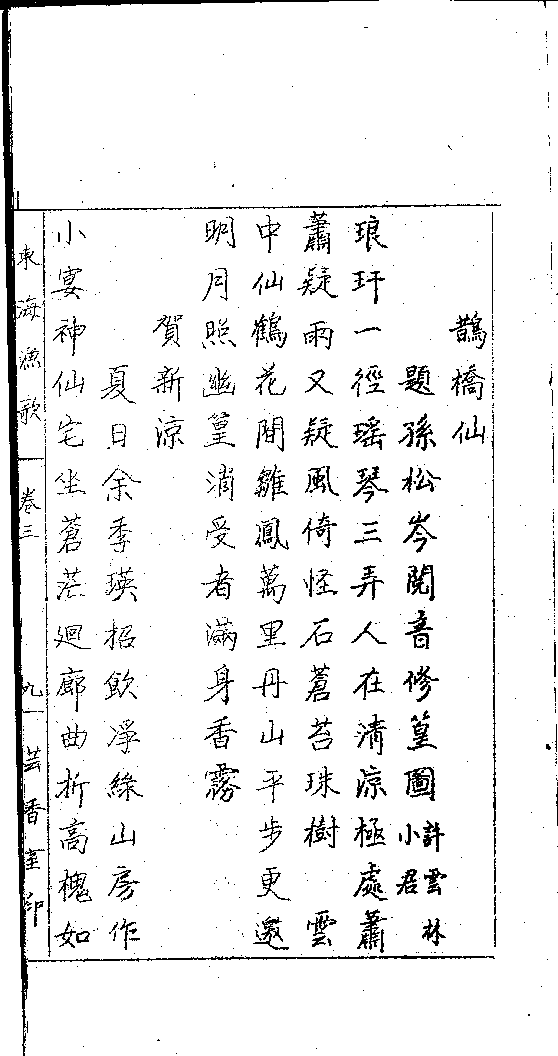 鵲橋仙
題孫松岑閱音修篁圖許雲林小君
琅玕一徑瑶琴三弄人在清涼極處蕭
蕭疑雨又疑風倚怪石蒼苔珠樹　雲
中仙鶴花間雛鳳萬里丹山平步更邀
明月照幽篁消受者滿身香霧
賀新涼
夏日余季瑛招飲淨綠山房作
小宴神仙宅坐蒼茫迴廊曲折高槐如
東海漁歌　卷三　九　芸香室印